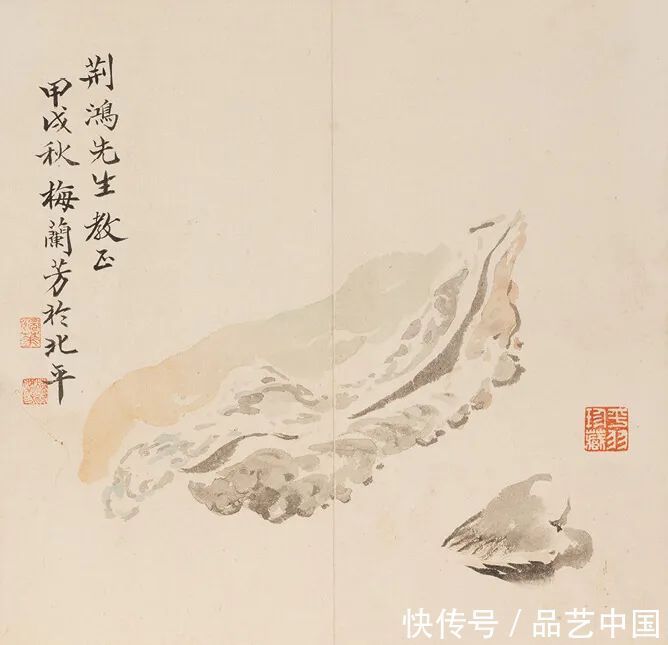 荆鴻先生教正
甲戌秋梅蘭芳於北平
平羽珍藏
快传号 / 品艺中国